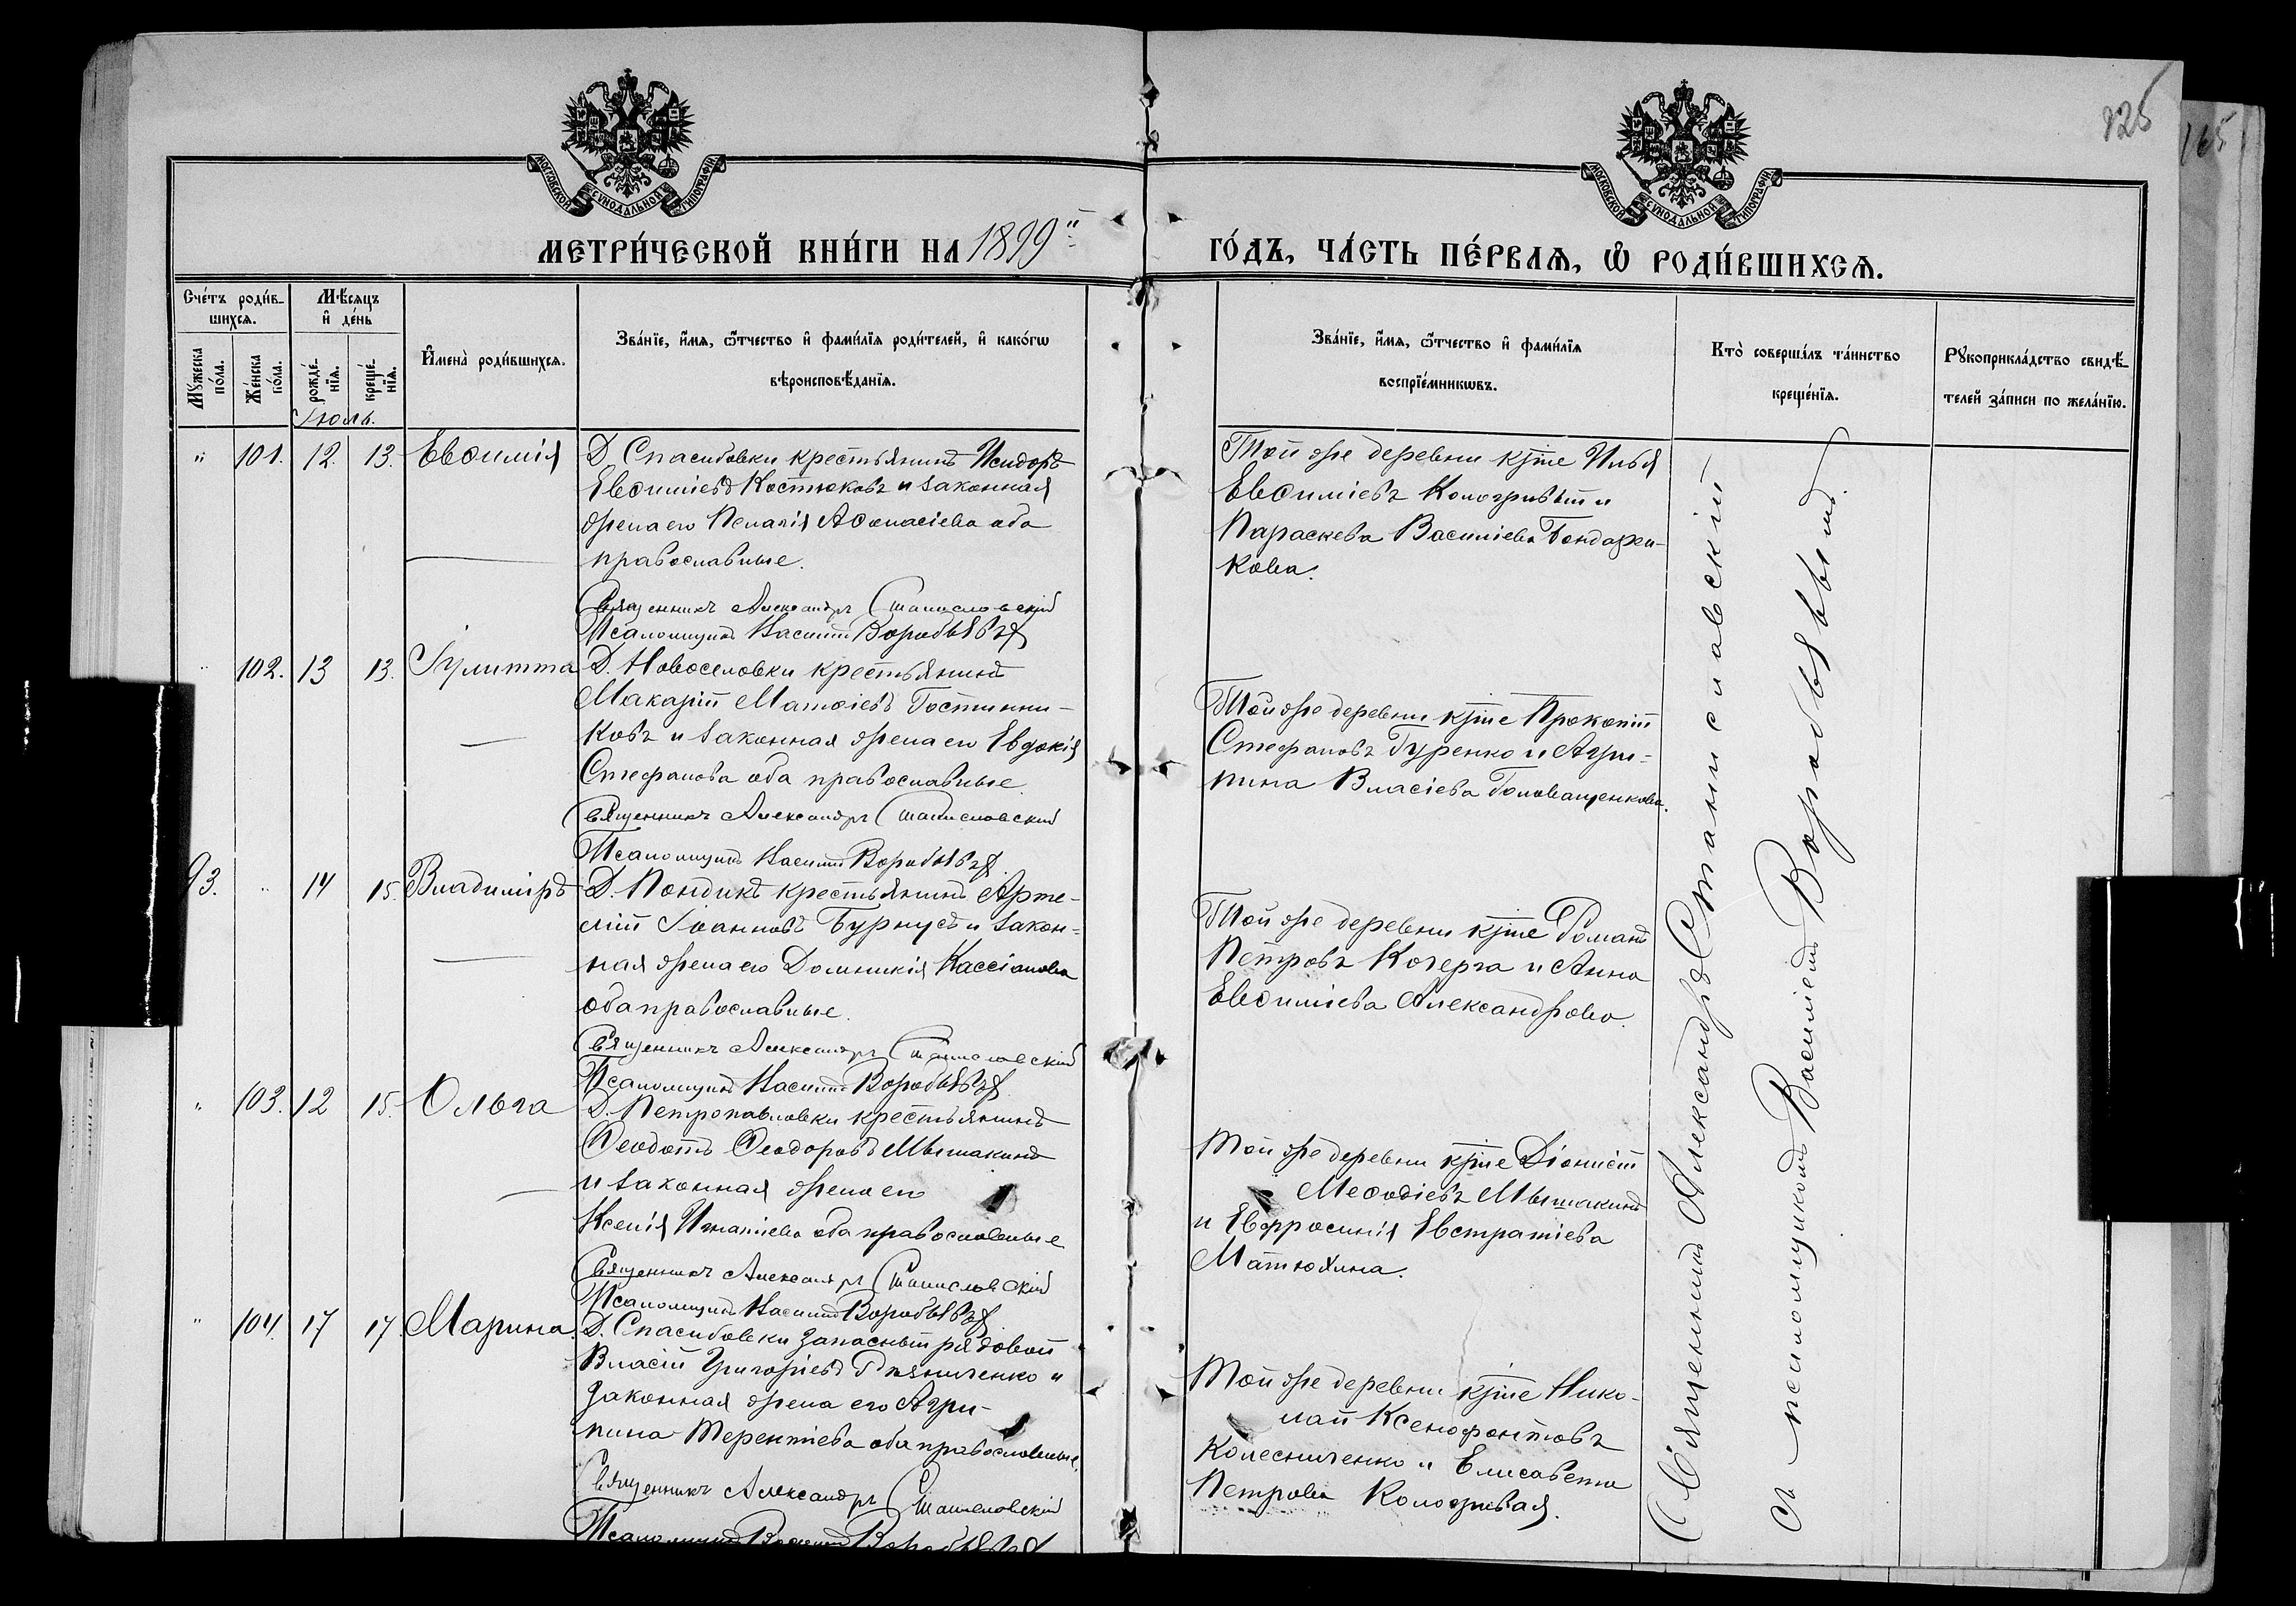 125
165
МОСКОВСКОЙ СѴНОДАЛЬНОЙ ТИПОГРАФІИ
МОСКОВСКОЙ СѴНОДАЛЬНОЙ ТИПОГРАФІИ
МЕТРИ́ЧЕСКОЙ КНИ́ГИ НА 1899й
ГО́ДЪ, ЧА́СТЬ ПЕ́РВАѦ, Ѡ҆ РОДИ́ВШИХСѦ.
Сче́тъ роди́в-
шихсѧ.
Мꙋ́жеска по́ла.
Же́нска по́ла.
Мѣ́сѧцъ
и҆ де́нь
рожде́-
нїѧ.
креще́-
нїѧ.
И҆мена̀ роди́вшихсѧ.
Зва́нїе, и҆́мѧ, ѻ҆́тчество и҆ фами́лїѧ роди́телей, и҆ како́гѡ
вѣроисповѣ́данїѧ.
Зва́нїе, и҆́мѧ, ѻ҆́тчество и҆ фами́лїѧ
воспрїе́мникѡвъ.
Кто̀ соверша́лъ та́инство
креще́нїѧ.
Рꙋкоприкла́дство свидѣ́-
телей за́писи по жела́нїю.
Іюль.
" 101. 12. 13. Евѳимія
Д Спасибовки крестьянинъ Исидоръ
Евѳиміевъ Костюковъ и законная
жена его Пелагія Аѳанасіева оба
православные.
Священникъ Александръ Станиславскій
Псаломщикъ Василій Воробьевъ
Той же деревни кр̃те Илья
Евѳиміевъ Кологривый и
Параскева Василіева Бондарен-
кова.
" 102. 13 13. Іулитта
Д. Новоселовки крестьянинъ
Макарій Матѳіевъ Гостинни-
ковъ и законная жена его Евдокія
Стефанова оба православные.
Священникъ Александръ Станиславскій
Псаломщикъ Василій Воробьевъ
Той же деревни кр̃те Прокопій
Стефановъ Гуренко и Агри-
пина Власіева Головащенкова.
93. " 14 15. Владиміръ
Д. Пондикъ крестьянинъ Арте-
мій Іоанновъ Бурнусъ и закон-
ная жена его Домникія Кассіанова
оба православные.
Священникъ Александръ Станиславскій
Псаломщикъ Василій Воробьевъ
Той же деревни кр̃те Романъ
Петровъ Кочерга и Анна
Евѳиміева Александрова.
" 103. 12 15. Ольга
Д. Петропавловки крестьянинъ
Ѳеодотъ Ѳеодоровъ Мышакинъ
и законная жена его
Ксенія Игнатіева оба православные
Священникъ Александръ Станиславскій
Псаломщикъ Василій Воробьевъ
Той же деревни кр̃те Діонисій
Меѳодіевъ Мышакинъ
и Евфросинія Евстратіева
Матюхина.
" 104. 17 17. Марина.
Д. Спасибовки запасный рядовой
Власій Григоріевъ
законная жена его Агри-
пина Терентіева оба православные.
Священникъ Александръ Станиславскій
Псаломщикъ Василій Воробьевъ
Той же деревни кр̃те Нико-
лай Ксенофонтовъ
Колесниченко и Елисавета
Петрова Кологривая.
Священникъ Александръ Станиславскій
съ псаломщикомъ Василіемъ Воробьевымъ